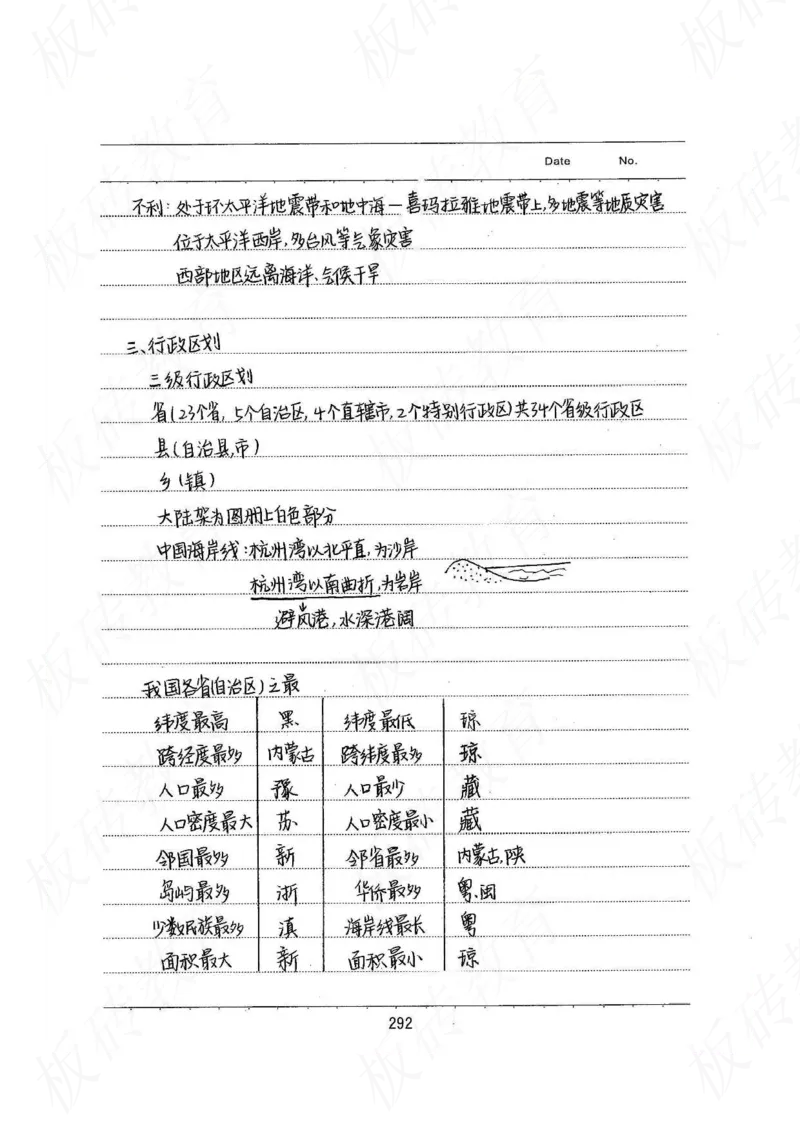 Date No.
不利：处于环太平洋地震带和地中海—喜玛拉雅地震带上，多地震等地质灾害
位于太平洋西岸，多台风等气象灾害
西部地区远离海洋、气候干旱
三、行政区划
三级行政区划
省(23个省，5个自治区，4个直辖市，2个特别行政区)共34个省级行政区
县(自治县，市)
乡(镇)
大陆架为图册上白色部分
中国海岸线：杭州湾以北平直，为沙岸
杭州湾以南曲折，为岩岸
避风港，水深港阔
我国各省(自治区)之最
纬度最高 黑 纬度最低 琼
跨经度最多 内蒙古 跨纬度最多 琼
人口最多 豫 人口最少 藏
人口密度最大 苏 人口密度最小 藏
邻国最多 新 邻省最多 内蒙古，陕
岛屿最多 浙 华侨最多 粤、闽
少数民族最多 滇 海岸线最长 粤
面积最大 新 面积最小 琼
292
板砖教育